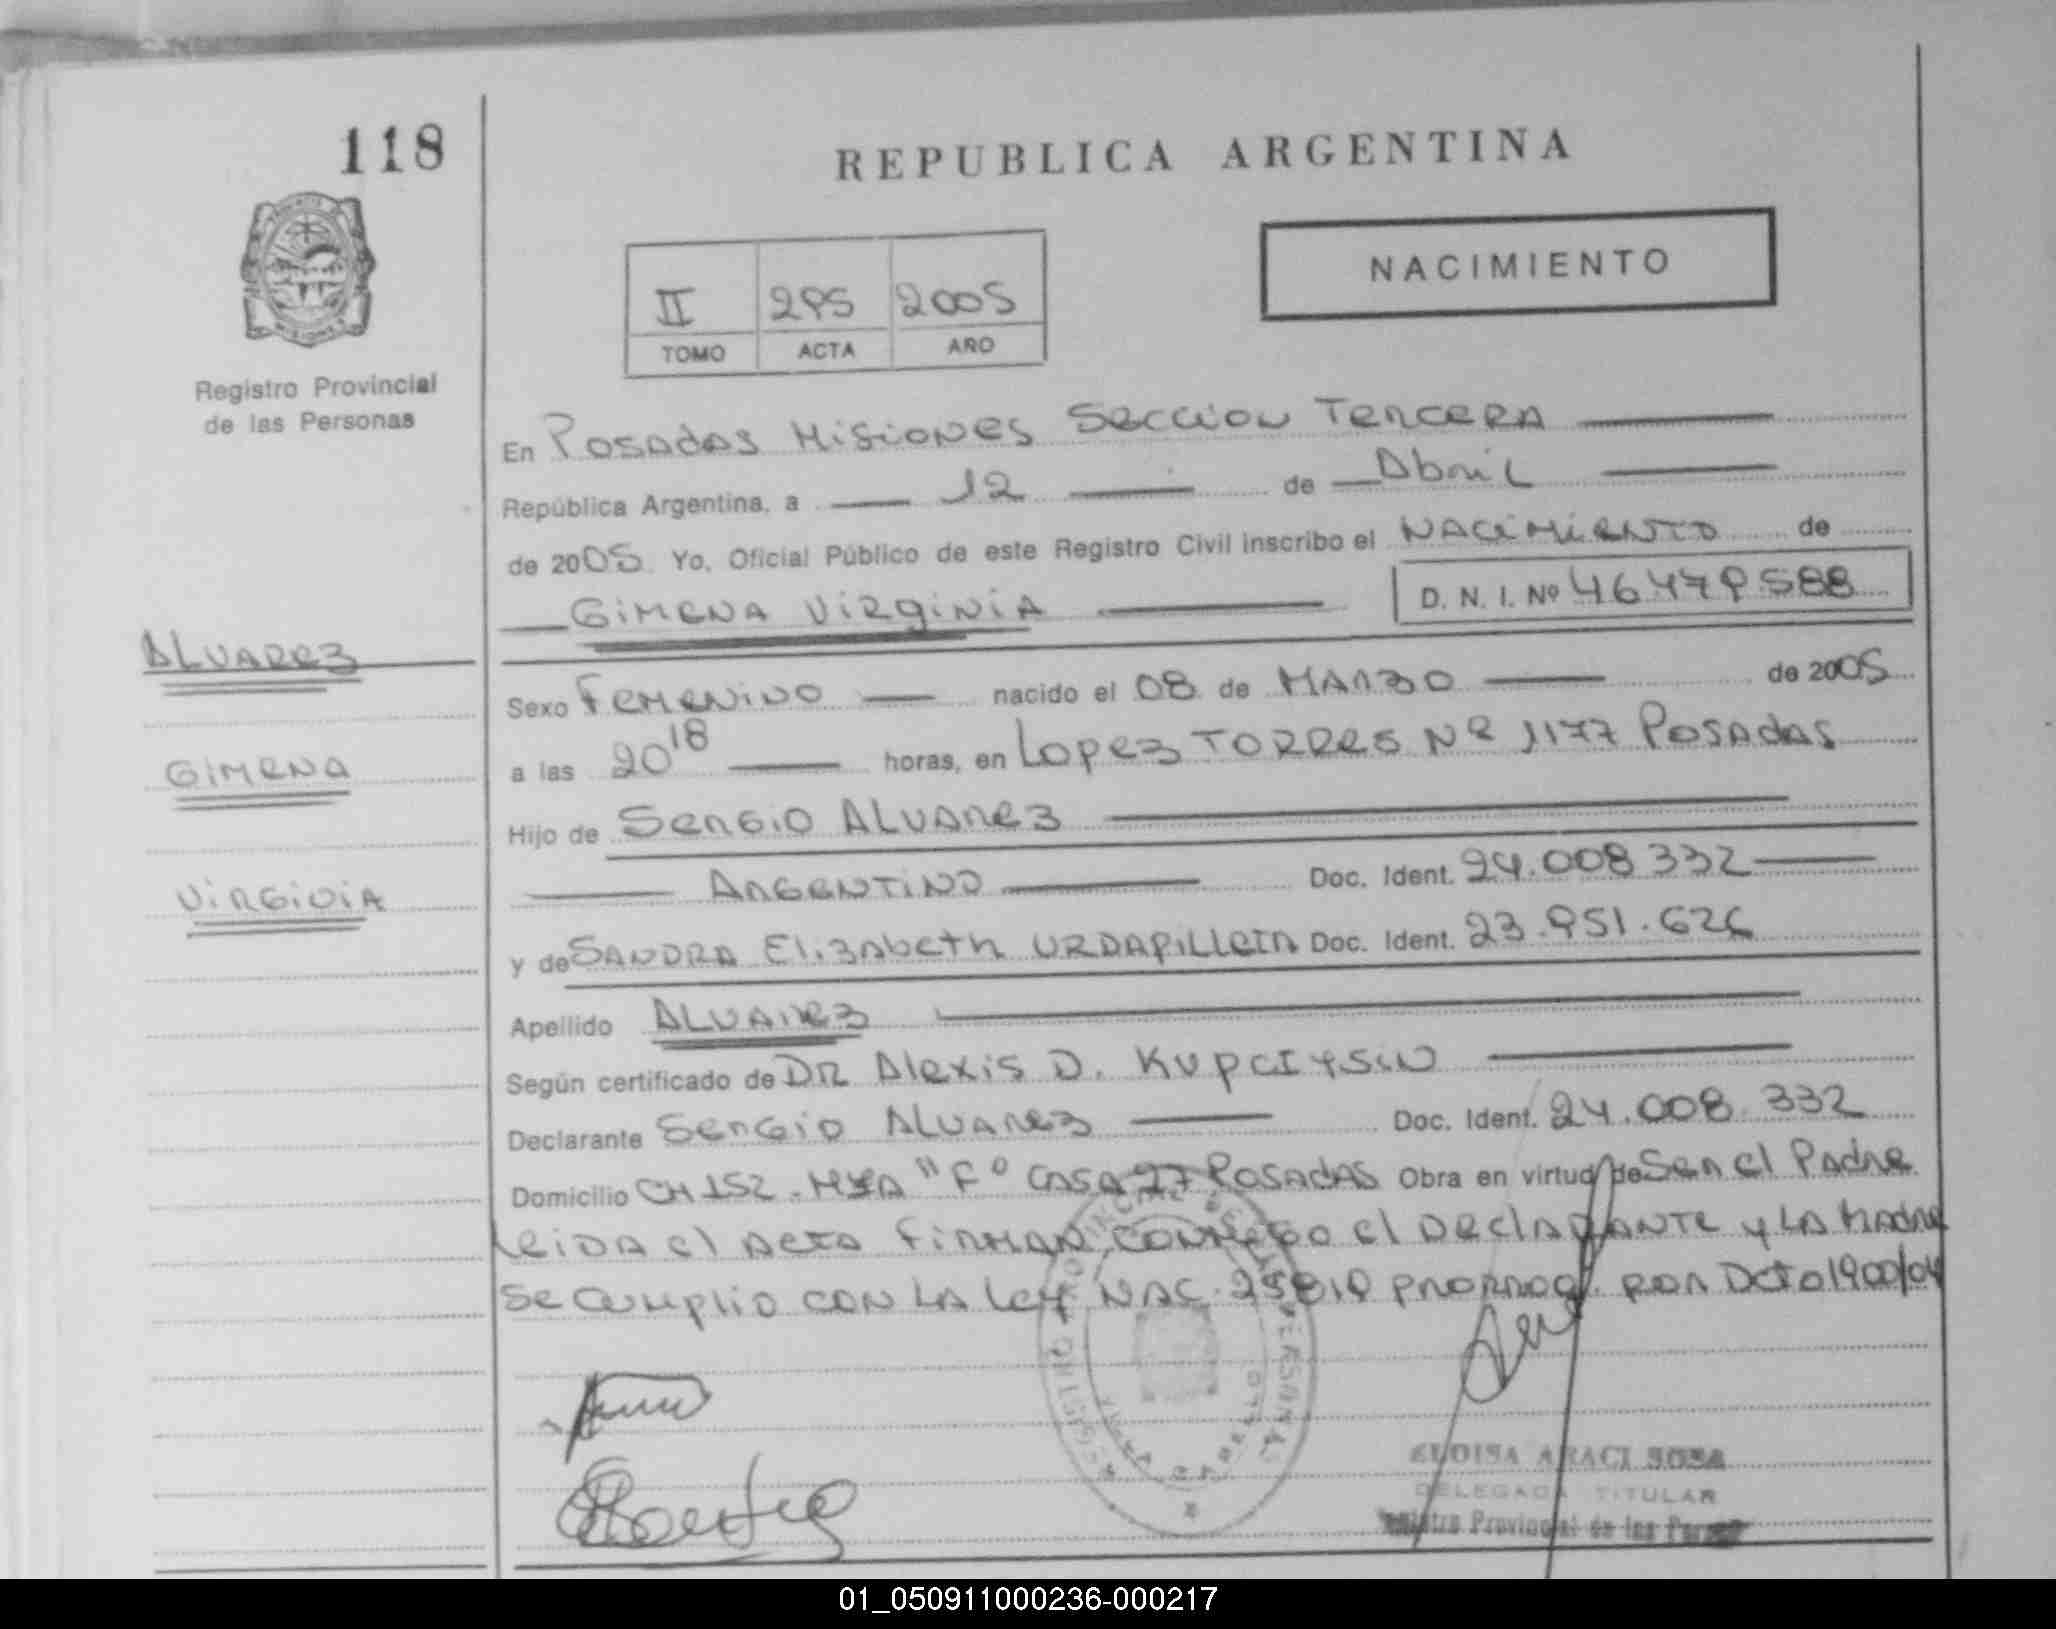 118
REPUBLICA ARGENTINA
NACIMIENTO
II 295 2005
TOMO ACTA AÑO
Registro Provincial
de las Personas
En Posadas Misiones Seccion Tercera
República Argentina, a 12 de Abril
de 2005 Yo, Oficial Público de este Registro Civil inscribo el NACIMIENTO de
GIMENA VIRGINIA D. N. I. Nº 46.479.588
ALVAREZ
Sexo FEMENINO nacido el 08 de MARZO de 2005
GIMENA
a las 20 18 horas, en Lopez TORRES Nº 1177 POSADAS
Hijo de Sergio ALVAREZ
VIRGINIA
ARGENTINO Doc. Ident. 24.008.332
y de SANDRA Elizabeth URDAPILLETA Doc. Ident. 23.951.626
Apellido ALVAREZ
Según certificado de DR Alexis D.
Declarante Sergio ALVAREZ Doc. Ident. 24.008.332
Domicilio CH 152 MZA "F" CASA 27 POSADAS Obra en virtud de Ser el Padre
Leida el Acta FIRMAN conmigo el DeclaRANTE y LA MADRE
Se cumplio CON LA Ley NAC. 25819 PRORROG. POR DCTO 1900/04
REGISTRO PROVINCIAL DE LAS PERSONAS
ELOISA ARACI SOSA
DELEGADA TITULAR
Registro Provincial de las Personas
01_050911000236-000217